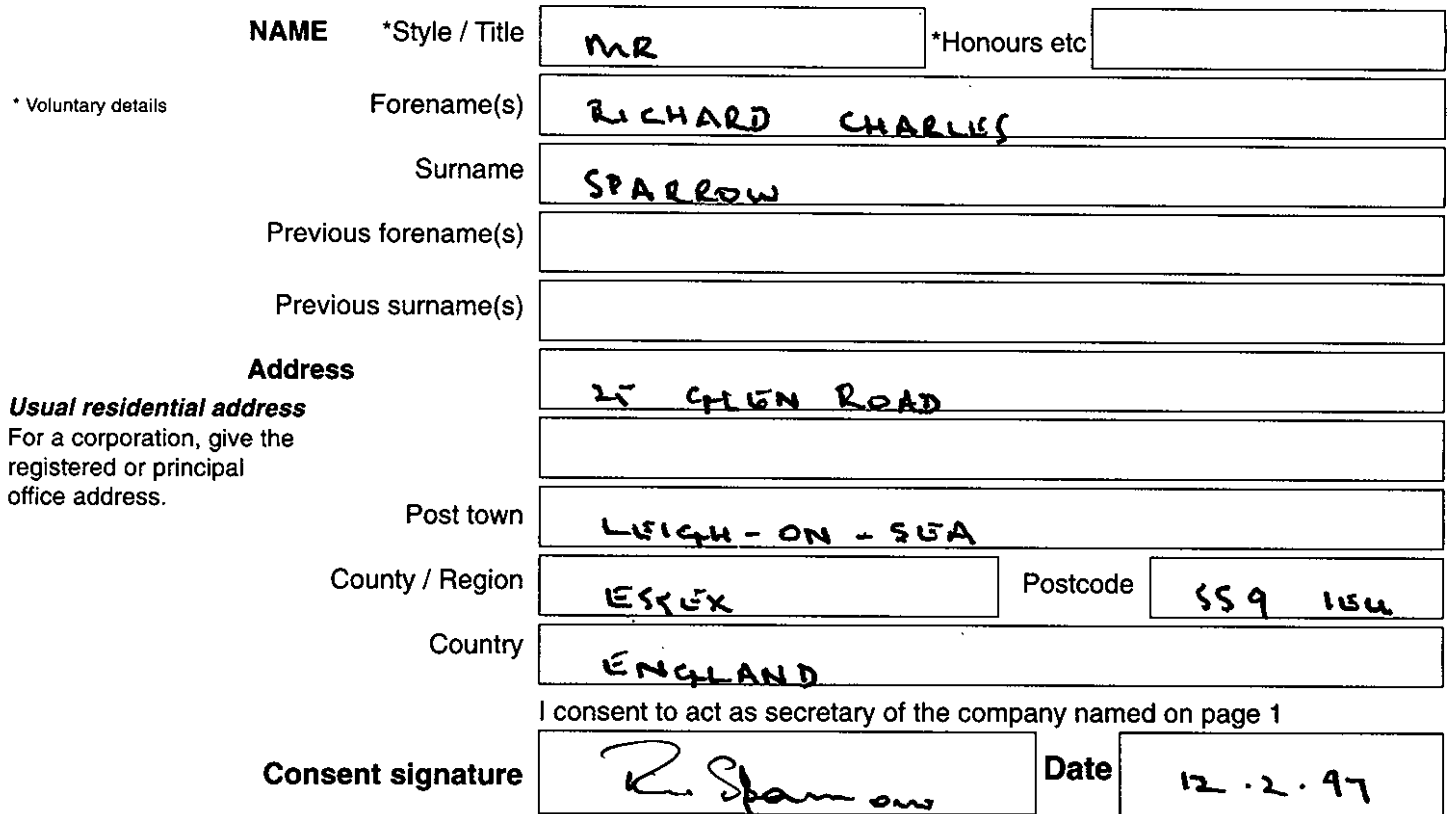 NAME *Style / Title MR *Honours etc
* Voluntary details Forename(s) RICHARD CHARLES
Surname SPARROW
Previous forename(s)
Previous surname(s)
Address 25 GLEN ROAD
Usual residential address
For a corporation, give the
registered or principal
office address.
Post town LEIGH-ON-SEA
County / Region ESSEX Postcode SS9 1EU
Country ENGLAND
I consent to act as secretary of the company named on page 1
Consent signature R. Sparrow Date 12.2.97